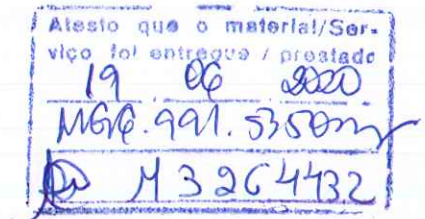 Atesto que o material/Ser-
viço foi entregue / prestado
19 06 2020
M3264432